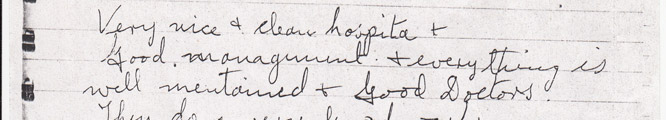 Very nice & clean hospita &
Good. managment. & everything is
well mentained & Good Doctors.
They do a very